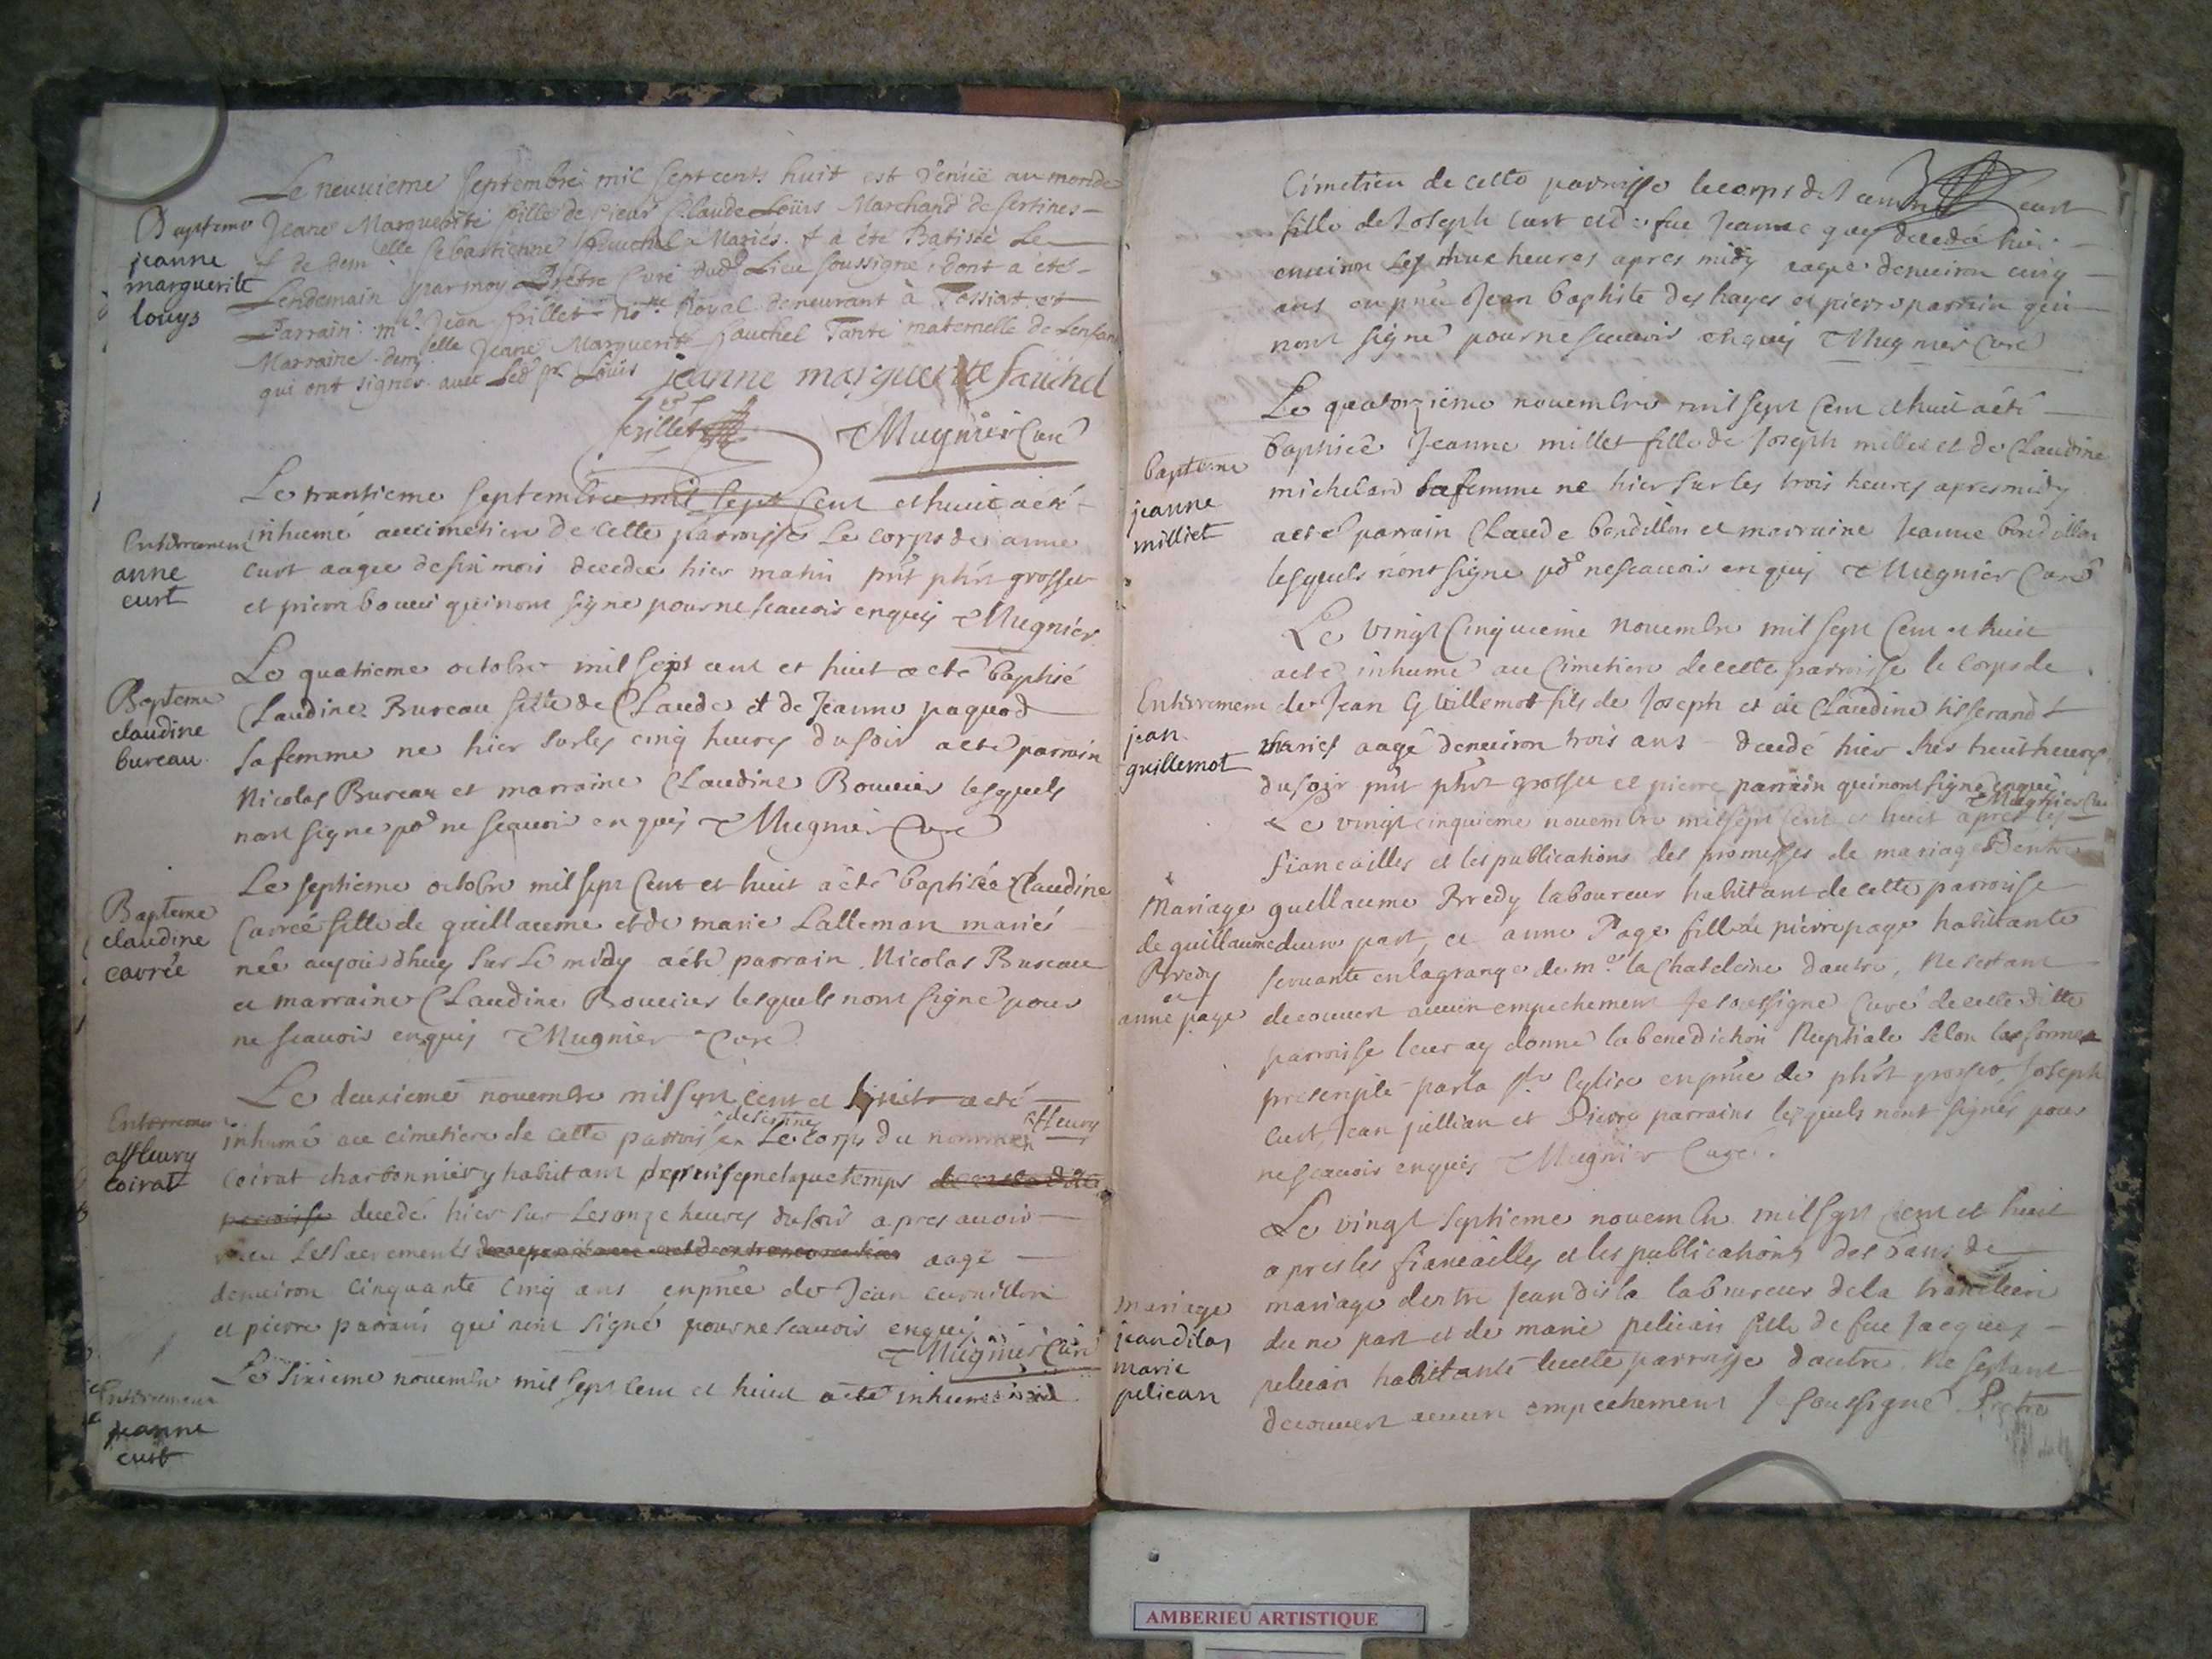 Le neuuieme septembre mil sept cents huit est venüe au monde
Bapteme
jeanne
marguerite
louys
Jeane Marguerite fille de Sieur Claude Loüis Marchand de Sertines
& de dem elle Sebastienne fauchel Mariés. & a été Batisée Le
Lendemain par moy Prêtre Curé dud Lieu soussigné, dont a été
Parrain: mr Jean frillet no re Royal demeurant à Tossiat et
Marraine dem elle Jeane Marguerite fauchel Tante maternelle de Lenfant
qui ont signés auec Led sr Loüis jeanne marguerite fauchel
frillet Mugnier Curé
Le trantieme septembre mil sept Cent et huit a été
Enterrement
anne
curt
inhumé au cimetiere de cette parroisse Le corps de anne
curt aagee de six mois decedee hier matin pnt phlt grosset
et pierre bouuier qui nont signe pour ne scauoir enquis Mugnier
Le quatrieme octobre mil sept cent et huit a eté baptisé
Bapteme
claudine
bureau
Claudine Bureau fille de Claude et de Jeanne paquod
sa femme ne hier sur les cinq heures du soir a eté parrain
Nicolas Bureau et marraine Claudine Bouuier lesquels
nont signe po ne scauoir enquis Mugnier Curé
Le septieme octobre mil sept Cent et huit a été baptisée Claudine
Bapteme
claudine
carrée
Carrée fille de guillaume et de marie Lalleman mariés
née aujourdhuy sur Le midy a été parrain Nicolas Bureau
et marraine Claudine Bouuier lesquels nont signé pour
ne scauoir enquis Mugnier Curé
Le deuxieme nouembre mil sept cent et huit a eté
Enterrement
affleury
coirat
inhumé au cimetiere de cette parroisse de sertine Le corps du nommé affleury
Coirat charbonnier y habitant depuis quelque temps de cette ditte
parroisse decedé hier sur Les onze heures du soir apres auoir
receu Les sacrements aagé
denuiron Cinquante Cinq ans en pnce de Jean curnillon
et pierre parrain qui nont signé pour ne scauoir enquis
Mugnier Curé
Le sixieme nouembre mil sept Cent et huit a été inhumé
Enterrement
jeanne
curt
Cimetiere de cette parroisse le corps de Jeanne curt
fille de Joseph Curt et de fue Jeanne decedé hier
enuiron les heures apres midy aagé denuiron cinq
ans en pnce Jean baptiste des hayes et pierre parrain qui
nont signé pour ne scauoir enquis Mugnier Curé
Le quatorzieme nouembre mil sept Cent et huit a été
bapteme
jeanne
milliet
baptisée Jeanne millet fille de Joseph millet et de Claudine
michelard sa femme ne hier sur les trois heures apres midy
a eté parrain Claude bondillon et marraine Jeanne bondillon
lesquels nont signe po ne scauoir enquis Mugnier Curé
Le vingt Cinquieme nouembre mil sept Cent et huit
a eté inhumé au Cimetiere de cette parroisse le corps de
Enterrement
jean
guillemot
de Jean Guillemot fils de Joseph et de Claudine tisserand
mariés aagé denuiron trois ans decedé hier sur huit heures
du soir pnt phlt grosset et pierre parrain qui nont signe enquis
Mugnier Cu
Le vingt cinquieme nouembre mil sept Cent et huit apres les
fiancailles et les publications des promesses de mariage Dentre
Mariage
de guillaume
Bredy
et
anne page
guillaume Bredy laboureur habitant de cette parroisse
dune part, et anne Page fille de pierre page habitante
seruante en la grange de me la Chateleine dautre, Ne sestant
decouuert aucun empechement Je soussigné Curé de cette ditte
parroisse leur ay donné la benediction Nuptiale selon la forme
prescripte par la ste Eglise en pnce de phlt grosset, Joseph
Curt, Jean jullian et Pierre parrains lesquels nont signés pour
ne scauoir enquis Mugnier Curé.
Le vingt septieme nouembre mil sept cent et huit
apres les fiancailles et les publications des bans de
mariage
jean dilas
marie
pelican
mariage dentre Jean laboureur de la
dune part et de marie pelican fille de fue Jacques
pelican habitante de cette parroisse dautre Ne sestant
decouuert aucun empechement Je soussigné Pretre
AMBERIEU ARTISTIQUE